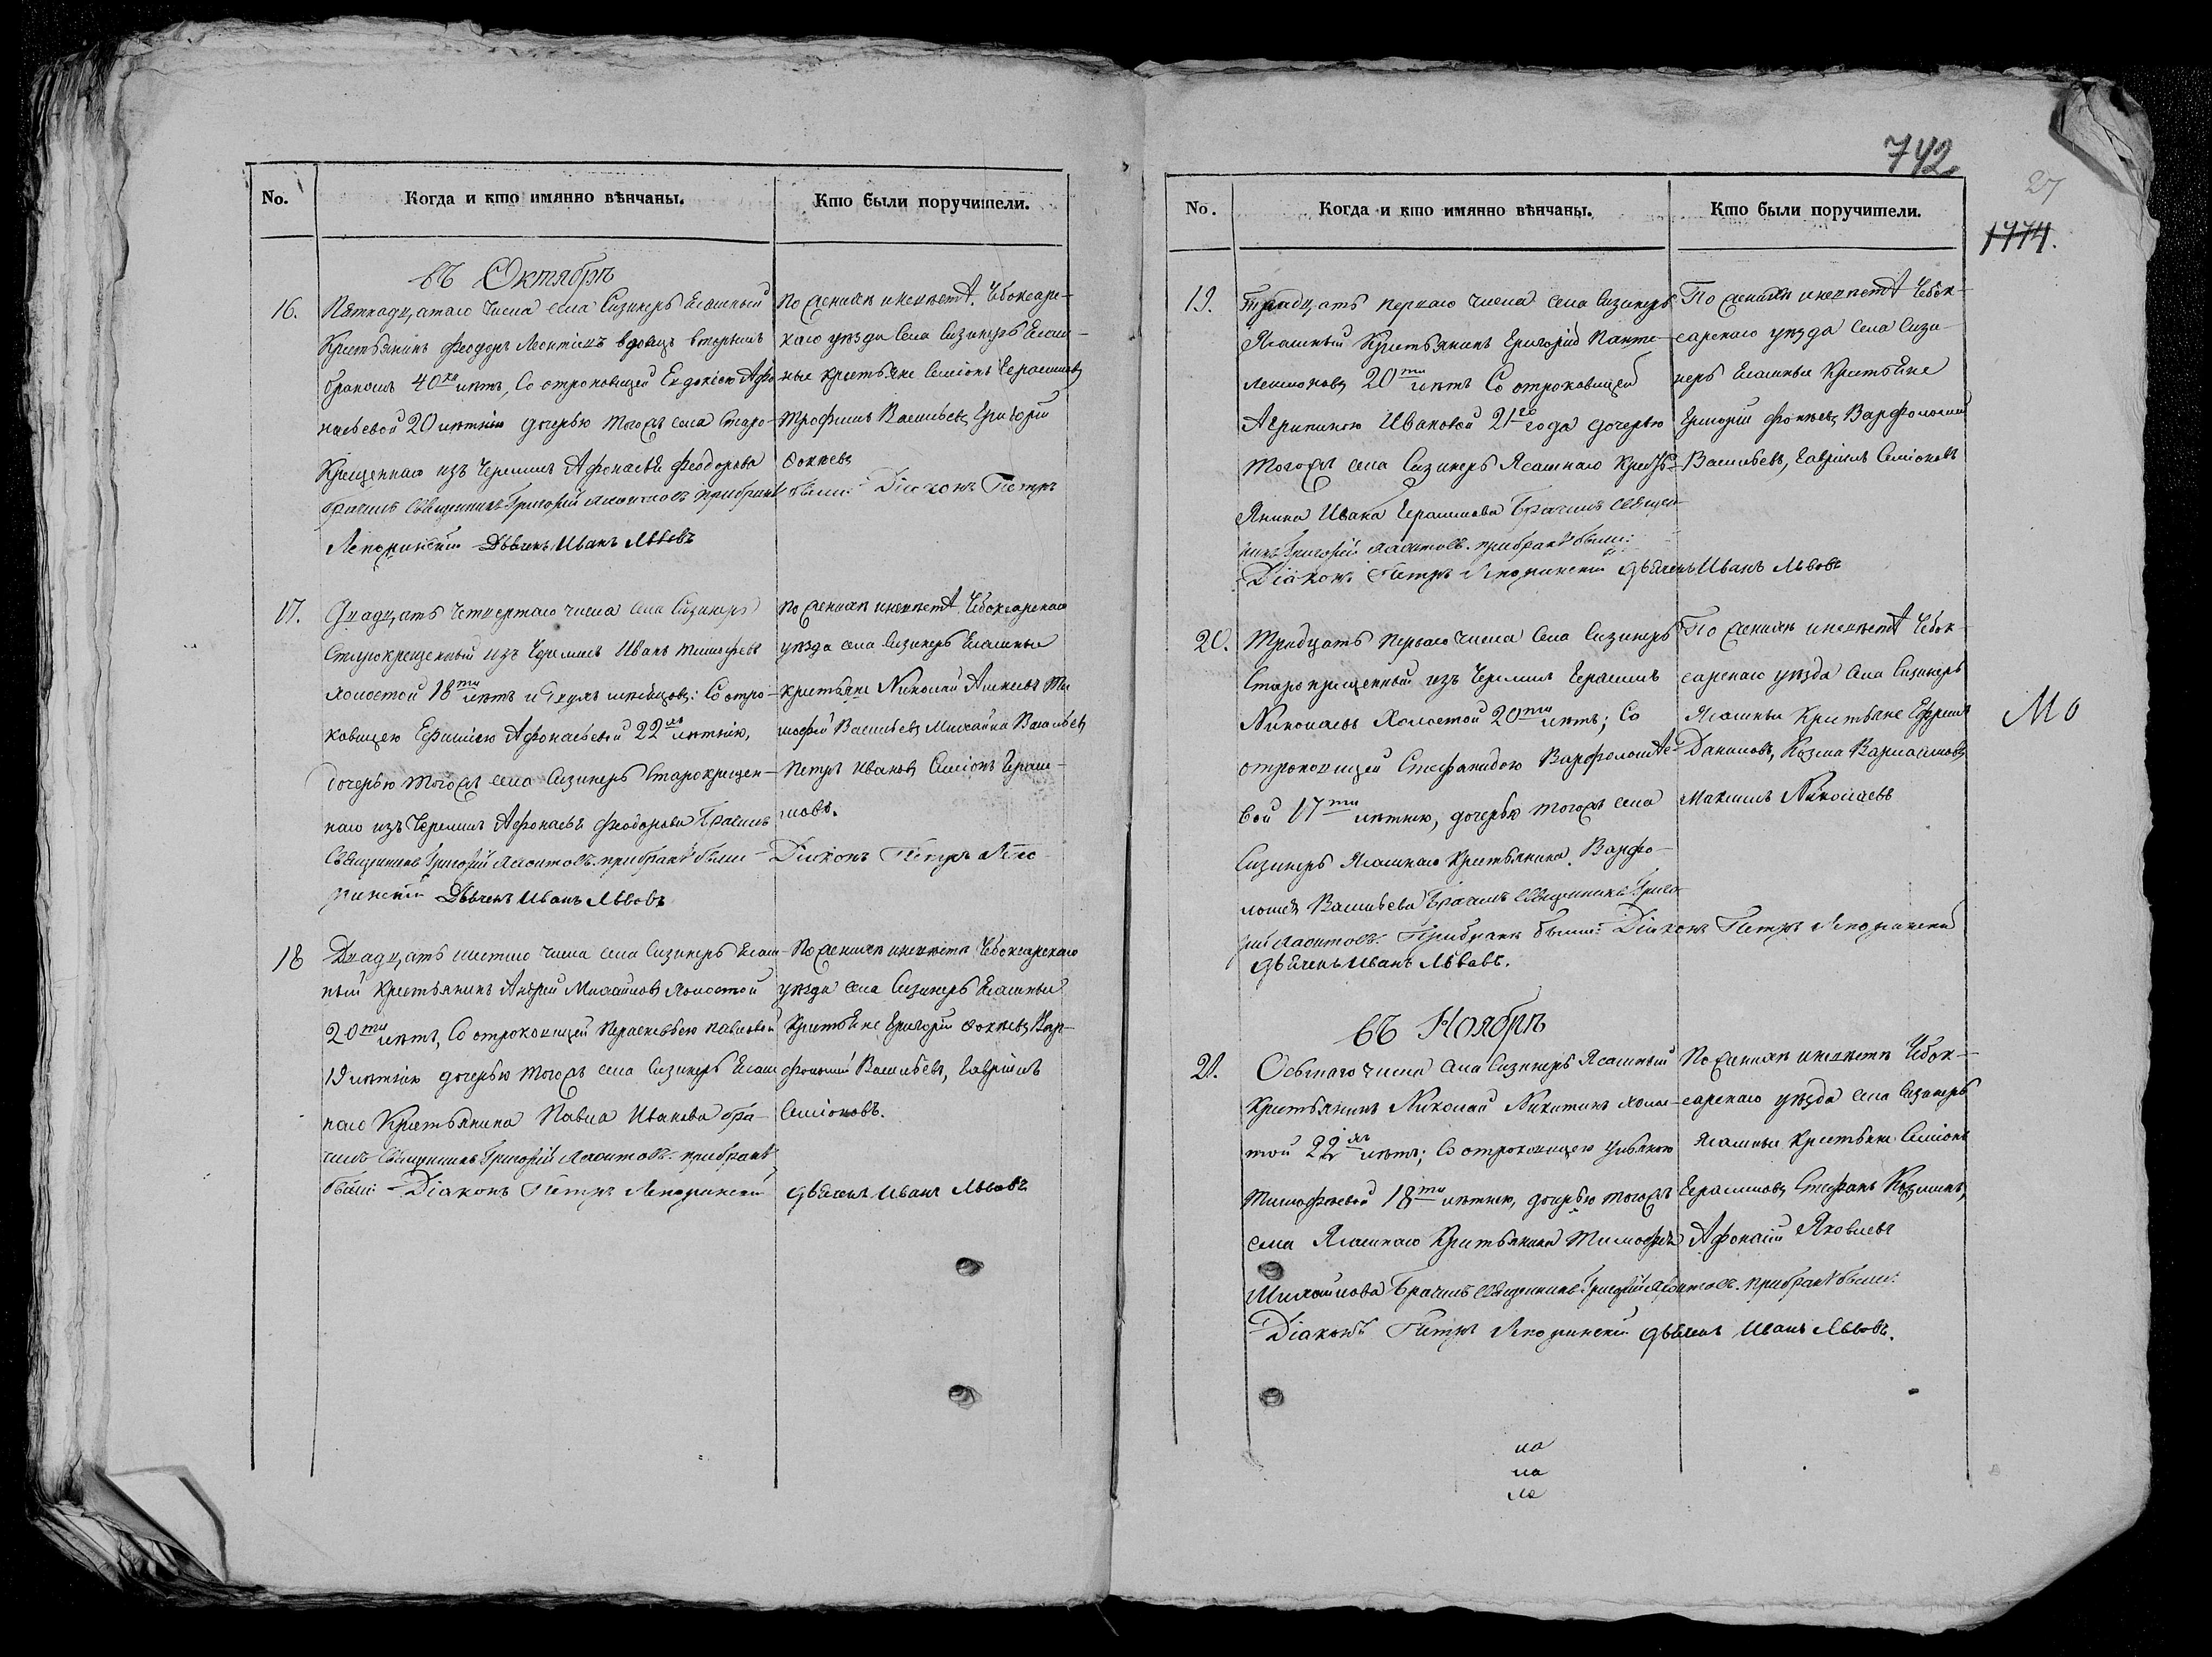 No.
Когда и кто имянно вѣнчаны.
Кто были поручители.
въ Октябрѣ
16.
Пятнадцатаго числа села Сизнеръ Ясашный
Крестьянинъ Феодоръ Леонтіевъ вдовецъ вторымъ
бракомъ 40 лѣтъ, Со отроковицей Евдокіею Афо-
насьевой 20 лѣтнею дочерью тогожъ села Старо-
крещеннаго изъ Черемисъ Афонасья Феодорова
браčилъ Священникъ Григорій прибракѣ
Лепоринскій Дьячекъ Иванъ Львовъ
По женихѣ и невѣстѣ Чебоксарс-
каго уѣзда Села Сизнеръ Ясаш-
ные крестьяне Симіонъ Герасимовъ
Трофимъ Васильевъ, Григорій
Фокѣевъ
были: Діаконъ Петръ
17.
Двадцать четвертаго числа села Сизнеръ
Старокрещенный изъ Черемисъ Иванъ Тимофеевъ
холостой 18ти лѣтъ мѣсяцовъ: Со отро-
ковицею Ефиміею Афонасьевой 22хъ лѣтнею,
дочерью тогожъ села Сизнеръ Старокрещен-
наго изъ Черемисъ Афонасья Феодорова Брачилъ
Священникъ Григорій прибракѣ были
Дьячекъ Иванъ Львовъ
По женихѣ и невѣстѣ Чебоксарскаго
уѣзда села Сизнеръ Ясашныя
крестьяне Николай Алексѣевъ Ти-
мофей Васильевъ, Михайла Васильевъ
Петръ Ивановъ Симіонъ Гераси-
мовъ.
Діаконъ Петръ Лепо-
ринскій
18
Двадцать шестаго числа села Сизнеръ Ясаш-
ный Крестьянинъ Андрей Михайловъ холостой
20ти лѣтъ, Со отроковицей Параскевьею Павловой
19 лѣтнею дочерью тогожъ села Сизнеръ Ясаш-
наго Крестьянина Павла Иванова бра-
чилъ Священникъ Григорій прибракѣ
были: Діаконъ Петръ Лепоринскій дьячекъ Иванъ Львовъ
По женихѣ и невѣстѣ Чебоксарскаго
уѣзда села Сизнеръ Ясашныя
Крестьяне Григорій Фокѣевъ, Вар-
фоломей Васильевъ, Гавріилъ
Симіоновъ.
742
27
1774.
No.
Когда и кто имянно вѣнчаны.
Кто были поручители.
19.
Тридцать перваго числа села Сизнеръ
Ясашный Крестьянинъ Григорій Панте-
леимоновъ 20ти лѣтъ Со отроковицей
Агрипиною Ивановой 21го года дочерью
тогожъ села Сизнеръ Ясашнаго Кресть-
янина Ивана Герасимова Брачилъ Священ-
никъ Григорій прибракѣ были:
Діаконъ Петръ Лепоринскій дьячекъ Иванъ Львовъ
По женихѣ и невѣстѣ Чебок-
сарскаго уѣзда Села Сиз-
неръ Ясашныя Крестьяне
Григорій Фокѣевъ, Варфоломей
Васильевъ, Гавріилъ Симіоновъ
20.
Тридцать перваго числа Села Сизнеръ
Старокрещенный изъ Черемисъ Герасимъ
Николаевъ Холостой 20ти лѣтъ; Со
отроковицей Стефанидою Варфоломѣе-
вой 17ти лѣтнею, дочерью тогожъ села
Сизнеръ Ясашнаго Крестьянина Варфо-
ломея Васильева Брачилъ Священникъ Григо-
рій Прибракѣ были: Діаконъ Петръ Лепоринскій
дьячекъ Иванъ Львовъ.
По женихѣ и невѣстѣ Чебок-
сарскаго уѣзда Села Сизнеръ
Ясашныя Крестьяне Ефремъ
Даниловъ, Козма Варламовъ
Максимъ Николаевъ
МО
въ Ноябрѣ
21.
Осьмаго числа Села Сизнеръ Ясашный
Крестьянинъ Николай Никитинъ холос-
той 22хъ лѣтъ; Со отроковицею Ульяною
Тимофѣевой 18ти лѣтнею, дочерью тогожъ
села Ясашнаго Крестьянина Тимофея
Михайлова Брачилъ Священникъ Григорій прибракѣ были:
Діаконъ Петръ Лепоринскій дьячекъ Иванъ Львовъ.
По женихѣ и невѣстѣ Чебок-
сарскаго уѣзда села Сизнеръ
Ясашныя Крестьяне Симіонъ
Герасимовъ, Стефанъ Козминъ,
Афонасій Яковлевъ